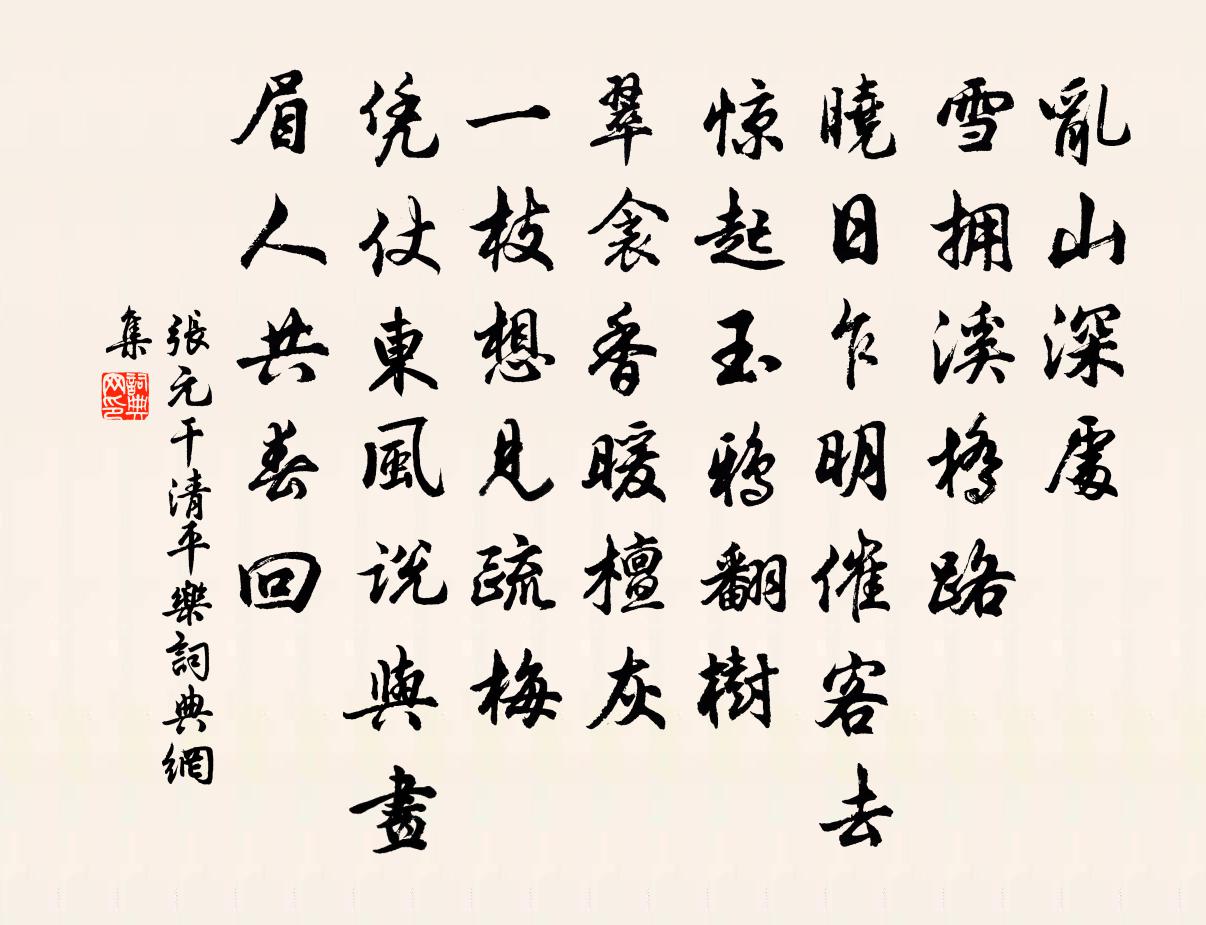 亂山深處
雪拥溪橋路
曉日乍明催客去
惊起玉鴉翻樹
翠衾香暖檀灰
一枝想見疏梅
凭仗東風说與畫
眉人共春回
張元干清平樂詞典網
集
詞典网印